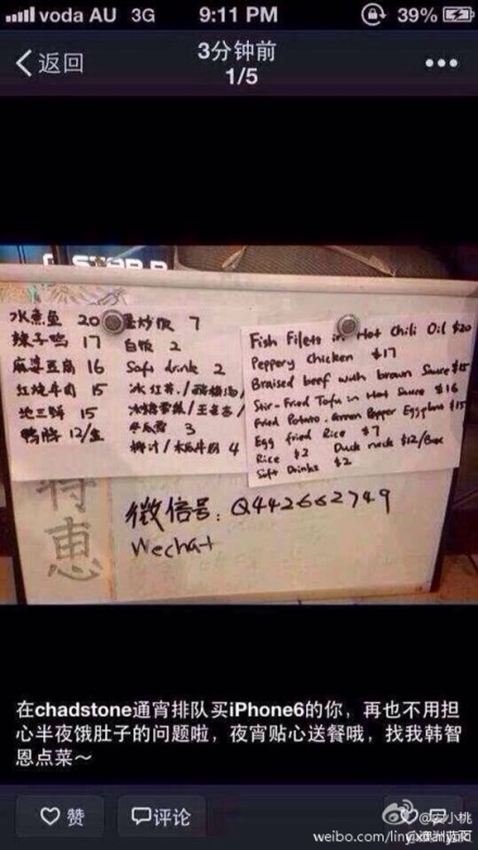 voda AU 3G 9:11 PM 39%
返回
3分钟前
1/5
水煮鱼 20
辣子鸡 17
麻婆豆腐 16
红烧牛肉 15
地三鲜 15
鸭脖 12/盒
蛋炒饭 7
白饭 2
Soft drink 2
冰红茶/酸梅汤/
冰糖雪梨/王老吉/
冬瓜露 3
椰汁/木瓜牛奶 4
Fish Filets in Hot Chili Oil $20
Peppery Chicken $17
Braised beef with brown Sauce $15
Stir-Fried Tofu in Hot Sauce $16
Fried Potato. Green Pepper Eggplant $15
Egg fried Rice $7
Rice $2 Duck neck $12/Box
Soft Drinks $2
特惠
微信号: Q442662749
Wechat
在chadstone通宵排队买iPhone6的你，再也不用担
心半夜饿肚子的问题啦，夜宵贴心送餐哦，找我韩智
恩点菜～
赞
评论
weibo.com/